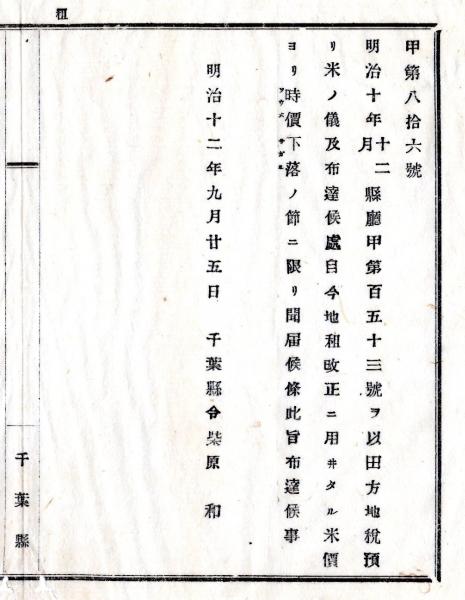 租
甲第八拾六號
明治十年十二月縣廳甲第百五十三號ヲ以田方地税預
リ米ノ儀及布達候處自今地租改正ニ用井タル米價
ヨリ時價下落ノ節ニ限リ聞届候條此旨布達候事
明治十二年九月廿五日 千葉縣令柴原 和
千葉縣